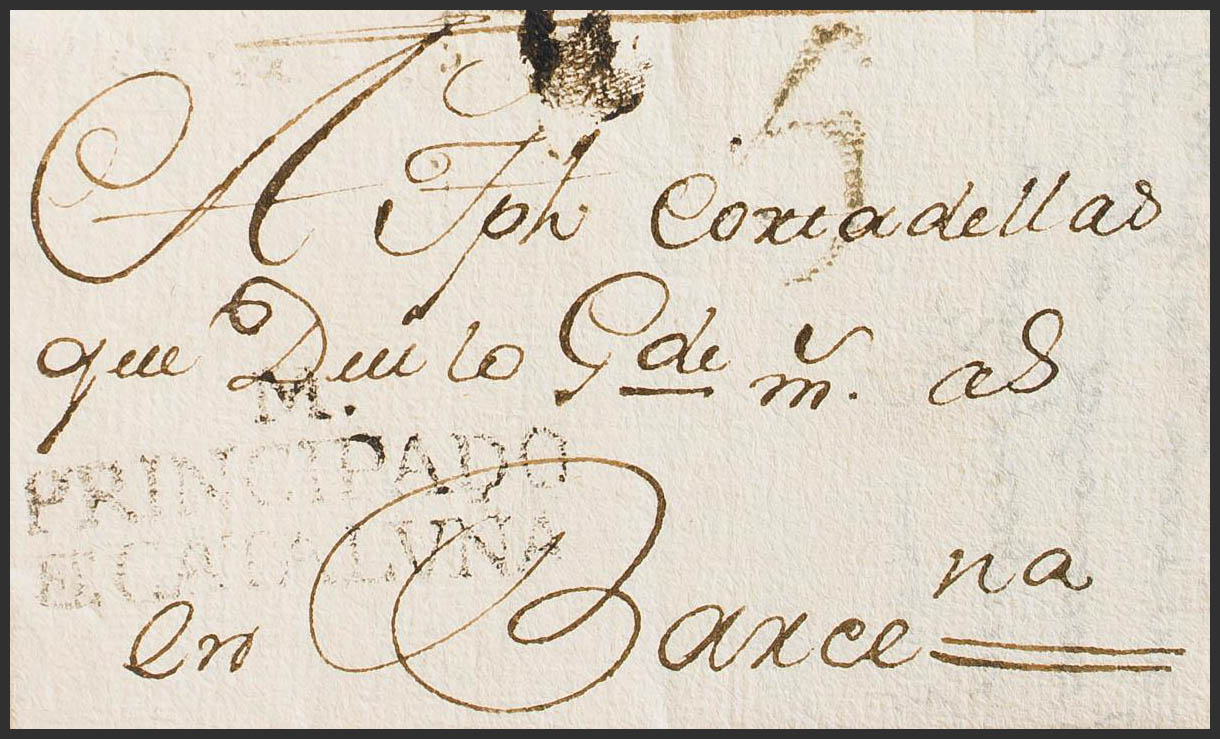 A Jph Cortadellas
5
que Diu lo Gde ms. as
M.
PRINCIPADO
D.CATALVNA
en Barcena